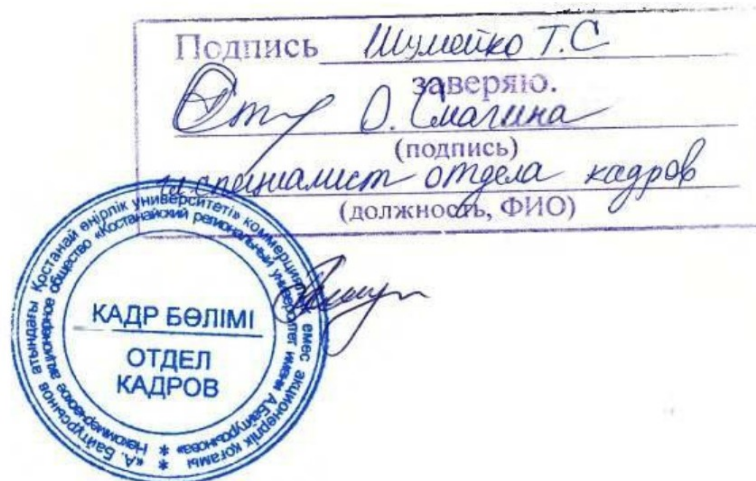 Подпись Шумейко Т.С
заверяю.
О. Смагина
(подпись)
гл.специалист отдела кадров
(должность, ФИО)
«А. Байтұрсынов атындағы Қостанай өңірлік университеті» коммерциялық емес акционерлік қоғамы
Некоммерческое акционерное общество «Костанайский региональный университет имени А.Байтурсынова»
КАДР БӨЛІМІ
ОТДЕЛ
КАДРОВ